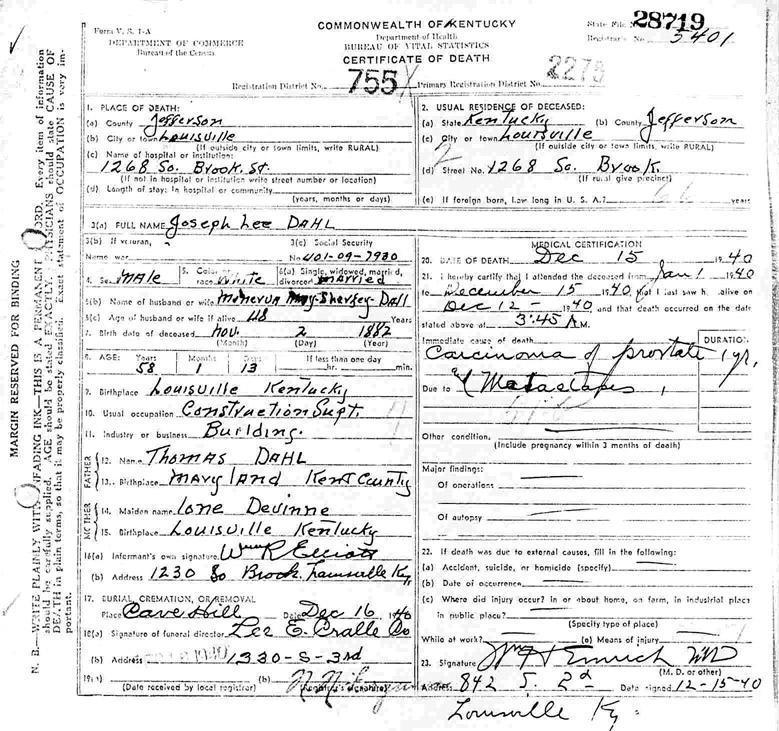 Form V. S. 1-A
DEPARTMENT OF COMMERCE
Bureau of the Census
COMMONWEALTH OF KENTUCKY
Department of Health
BUREAU OF VITAL STATISTICS
CERTIFICATE OF DEATH
State File No. 28719
Registrar's No. 5401
Registration District No. 755 Primary Registration District No. 2275
MARGIN RESERVED FOR BINDING
1. PLACE OF DEATH:
(a) County Jefferson
(b) City or town Louisville
(If outside city or town limits, write RURAL)
(c) Name of hospital or institution:
1268 So. Brook St.
(If not in hospital or institution write street number or location)
(d) Length of stay: In hospital or community
(years, months or days)
2. USUAL RESIDENCE OF DECEASED:
(a) State Kentucky (b) County Jefferson
(c) City or town Louisville
(If outside city or town limits, write RURAL)
(d) Street No. 1268 So. Brook
(If rural give precinct)
(e) If foreign born, how long in U. S. A.? years
3(a) FULL NAME Joseph Lee DAHL
3(b) If veteran,
Name war
3(c) Social Security
No. 401-09-7930
4. Sex Male 5. Color or race White 6(a) Single, widowed, married, divorced Married
6(b) Name of husband or wife Minerva May Sherley Dall
6(c) Age of husband or wife if alive 48 Years
7. Birth date of deceased Nov. 2 1882
(Month) (Day) (Year)
8. AGE: Years Months Days If less than one day
58 1 13 hr. min.
9. Birthplace Louisville Kentucky
10. Usual occupation Construction Supt.
11. Industry or business Building.
FATHER
12. Name Thomas DAHL
13. Birthplace Maryland Kent County
MOTHER
14. Maiden name Ione Devinne
15. Birthplace Louisville Kentucky
16(a) Informant's own signature Wm R Elliott
(b) Address 1230 So Brook Louisville Ky.
17. BURIAL, CREMATION, OR REMOVAL
Place Cave Hill Date Dec 16 1940
18(a) Signature of funeral director Lee E. Cralle Co
(b) Address 1330-S-3rd
19(a) (b)
(Date received by local registrar) (Registrar's signature)
MEDICAL CERTIFICATION
20. DATE OF DEATH Dec 15 1940
21. I hereby certify that I attended the deceased from Jan 1 1940
to December 15 1940, that I last saw h alive on
Dec 12 - 1940 and that death occurred on the date
stated above at 3:45 A.M.
Immediate cause of death DURATION
Carcinoma of prostate 1 yr.
Due to Metastases
Other condition.
(Include pregnancy within 3 months of death)
Major findings:
Of operations
Of autopsy
22. If death was due to external causes, fill in the following:
(a) Accident, suicide, or homicide (specify)
(b) Date of occurrence
(c) Where did injury occur? In or about home, on farm, in industrial place
in public place?
(Specify type of place)
While at work? (e) Means of injury
23. Signature Wm H Emrich MD
(M. D. or other)
Address 842 S. 2d Date signed 12-15-40
Louisville Ky.